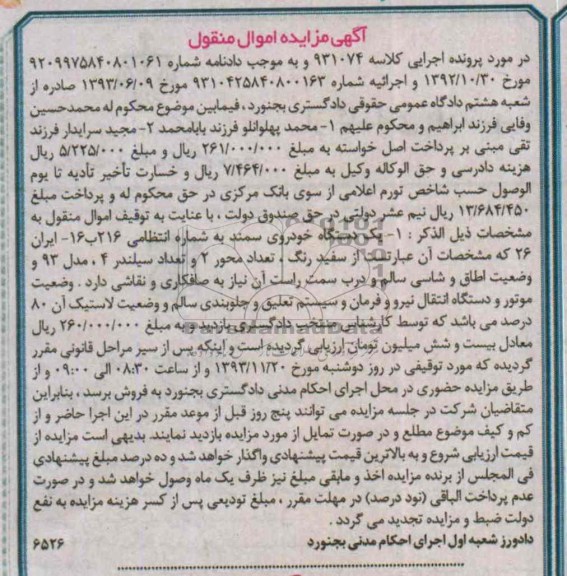 آگهی مزایده اموال منقول
در مورد پرونده اجرایی کلاسه ۹۳۱۰۷۴ و به موجب دادنامه شماره ۹۲۰۹۹۷۵۸۴۰۸۰۱۰۶۱
مورخ ۱۳۹۲/۱۰/۳۰ و اجرائیه شماره ۹۳۱۰۴۲۵۸۴۰۸۰۰۱۶۳ مورخ ۱۳۹۳/۰۶/۰۹ صادره از
شعبه هشتم دادگاه عمومی حقوقی دادگستری بجنورد ، فیمابین موضوع محکوم له محمدحسین
وفایی فرزند ابراهیم و محکوم علیهم ۱- محمد پهلوانلو فرزند بابامحمد ۲- مجید سرایدار فرزند
تقی مبنی بر پرداخت اصل خواسته به مبلغ ۲۶۱/۰۰۰/۰۰۰ ریال و مبلغ ۵/۲۲۵/۰۰۰ ریال
هزینه دادرسی و حق الوکاله وکیل به مبلغ ۷/۴۶۴/۰۰۰ ریال و خسارت تأخیر تأدیه تا یوم
الوصول حسب شاخص تورم اعلامی از سوی بانک مرکزی در حق محکوم له و پرداخت مبلغ
۱۳/۶۸۴/۴۵۰ ریال نیم عشر دولتی در حق صندوق دولت ، با عنایت به توقیف اموال منقول به
مشخصات ذیل الذکر : ۱- یک دستگاه خودروی سمند به شماره انتظامی ۲۱۶ب۱۶- ایران
۲۶ که مشخصات آن عبارتست از سفید رنگ ، تعداد محور ۲ و تعداد سیلندر ۴ ، مدل ۹۳ و
وضعیت اطاق و شاسی سالم و درب سمت راست آن نیاز به صافکاری و نقاشی دارد . وضعیت
موتور و دستگاه انتقال نیرو و فرمان و سیستم تعلیق و جلوبندی سالم و وضعیت لاستیک آن ۸۰
درصد می باشد که توسط کارشناس منتخب دادگستری بازدید و به مبلغ ۲۶۰/۰۰۰/۰۰۰ ریال
معادل بیست و شش میلیون تومان ارزیابی گردیده است و اینکه پس از سیر مراحل قانونی مقرر
گردیده که مورد توقیفی در روز دوشنبه مورخ ۱۳۹۳/۱۱/۲۰ و از ساعت ۰۸:۳۰ الی ۰۹:۰۰ و از
طریق مزایده حضوری در محل اجرای احکام مدنی دادگستری بجنورد به فروش برسد ، بنابراین
متقاضیان شرکت در جلسه مزایده می توانند پنج روز قبل از موعد مقرر در این اجرا حاضر و از
کم و کیف موضوع مطلع و در صورت تمایل از مورد مزایده بازدید نمایند. بدیهی است مزایده از
قیمت ارزیابی شروع و به بالاترین قیمت پیشنهادی واگذار خواهد شد و ده درصد مبلغ پیشنهادی
فی المجلس از برنده مزایده اخذ و مابقی مبلغ نیز ظرف یک ماه وصول خواهد شد و در صورت
عدم پرداخت الباقی (نود درصد) در مهلت مقرر ، مبلغ تودیعی پس از کسر هزینه مزایده به نفع
دولت ضبط و مزایده تجدید می گردد .
دادورز شعبه اول اجرای احکام مدنی بجنورد ۶۵۲۶